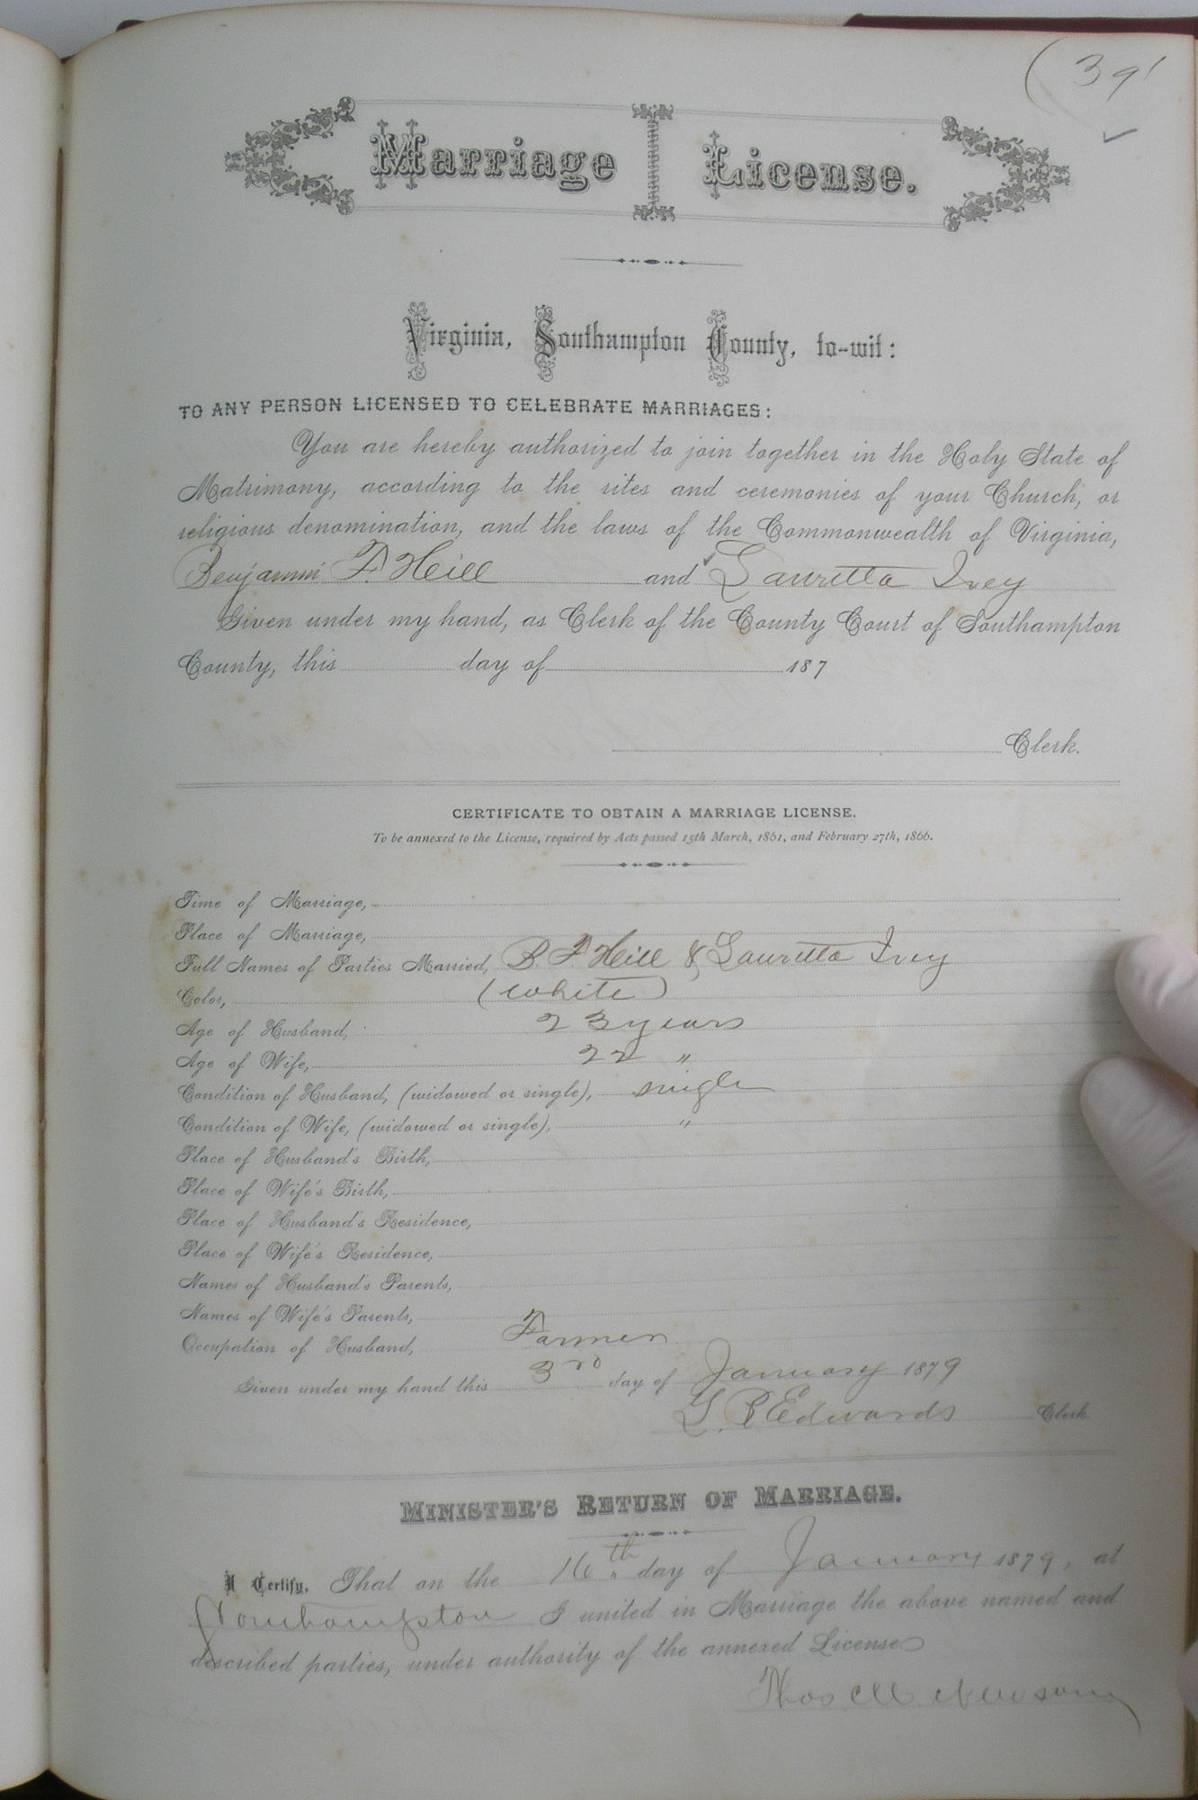 39
Marriage License.
Virginia, Southampton County, to-wit:
TO ANY PERSON LICENSED TO CELEBRATE MARRIAGES:
You are hereby authorized to join together in the Holy State of
Matrimony, according to the rites and ceremonies of your Church, or
religious denomination, and the laws of the Commonwealth of Virginia,
Benjamin F. Hill and Lauretta Ivey
Given under my hand, as Clerk of the County Court of Southampton
County, this day of 187
Clerk.
CERTIFICATE TO OBTAIN A MARRIAGE LICENSE.
To be annexed to the License, required by Acts passed 15th March, 1861, and February 27th, 1866.
Time of Marriage,
Place of Marriage,
Full Names of Parties Married, B. F. Hill & Lauretta Ivey
Color, (White)
Age of Husband, 23 years
Age of Wife, 22 "
Condition of Husband, (widowed or single), single
Condition of Wife, (widowed or single), "
Place of Husband's Birth,
Place of Wife's Birth,
Place of Husband's Residence,
Place of Wife's Residence,
Names of Husband's Parents,
Names of Wife's Parents,
Occupation of Husband, Farmer
Given under my hand this 3rd day of January 1879
L. R. Edwards Clerk
MINISTER'S RETURN OF MARRIAGE.
I Certify, That on the 16th day of January 1879, at
Southampton I united in Marriage the above named and
described parties, under authority of the annexed License
Thos Newsom